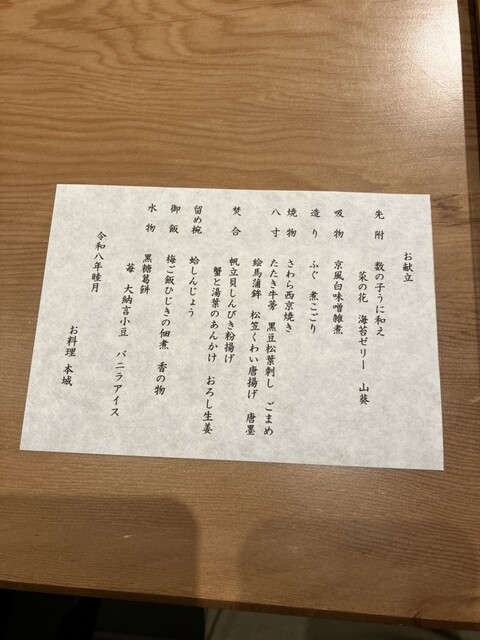 お献立
先附 数の子うに和え
菜の花 海苔ゼリー 山葵
吸物 京風白味噌雑煮
造り ふぐ 煮こごり
焼物 さわら西京焼き
八寸 たたき牛蒡 黒豆松葉刺し ごまめ
絵馬蒲鉾 松笠くわい唐揚げ 唐墨
焚合 帆立貝しんびき粉揚げ
蟹と湯葉のあんかけ おろし生姜
留め椀 蛤しんじょう
御飯 梅ご飯ひじきの佃煮 香の物
水物 黒糖葛餅
苺 大納言小豆 バニラアイス
令和八年睦月
お料理 本城